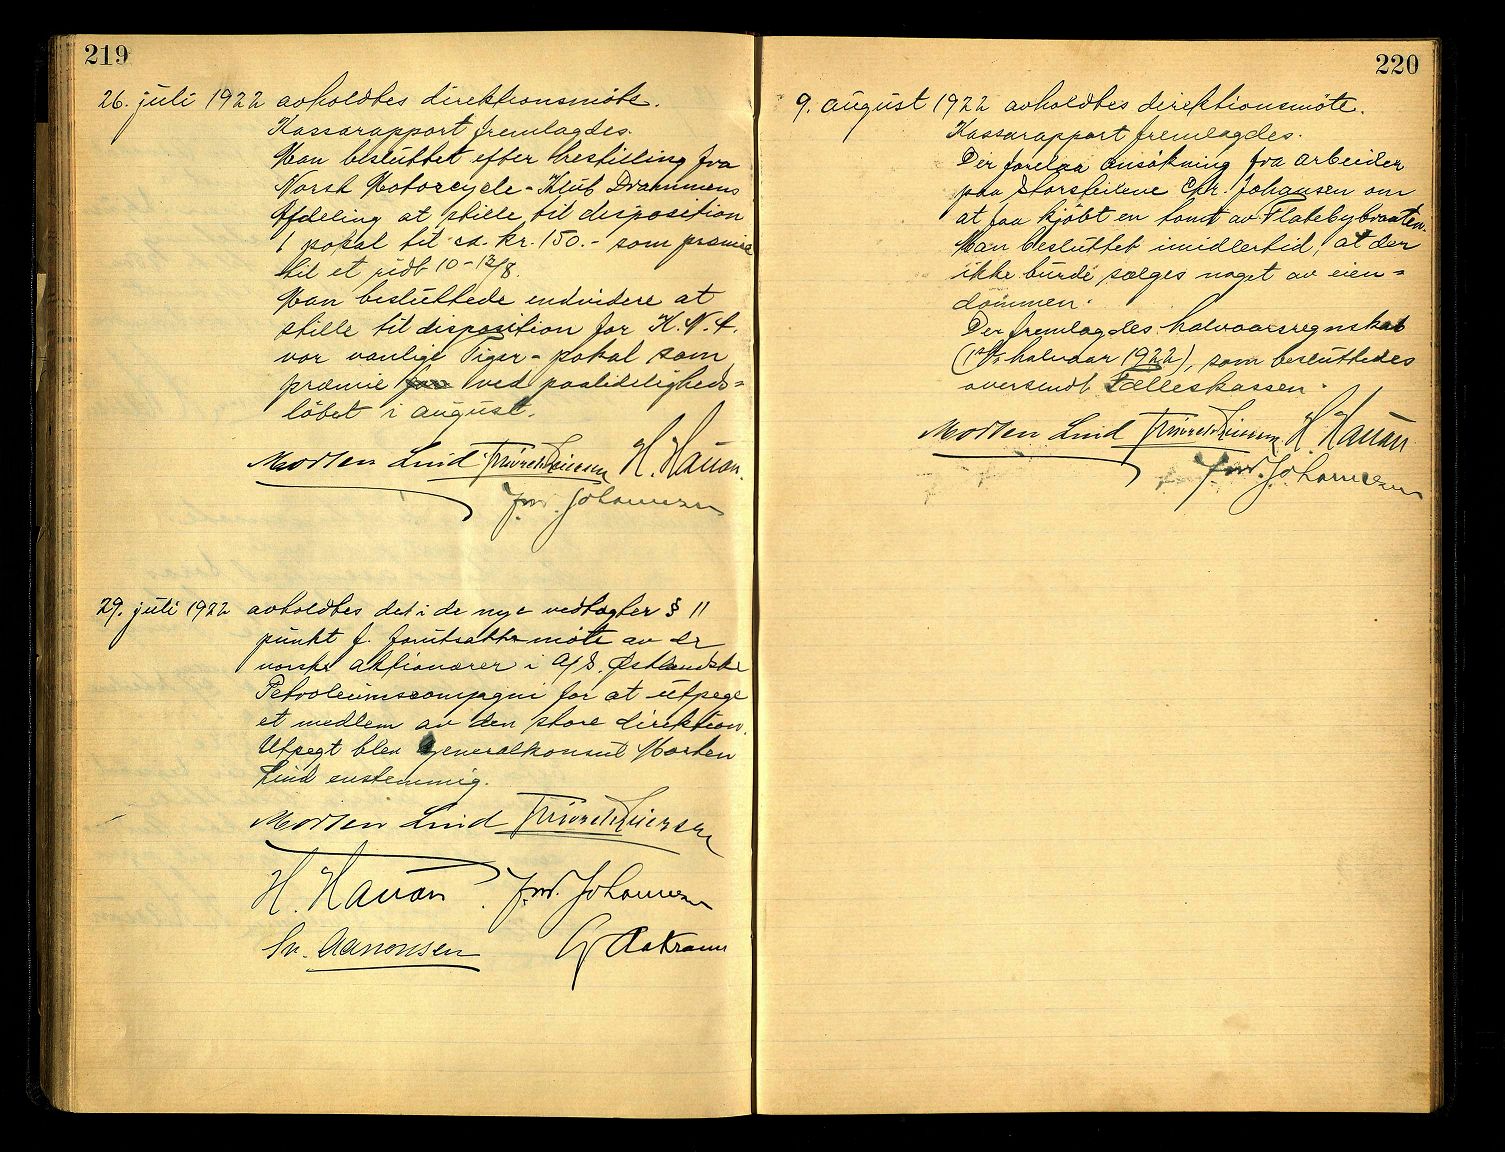 219
26. juli 1922 avholdtes direktionsmöte.
Kassarapport fremlagdes.
Man besluttet efter henstilling fra
Norsk Motorcycle-Klub Drammens
Afdeling at stille til disposition
1 pokal til ca. kr. 150.- som præmie
til et ridt 10-13/8.
Man besluttede endvidere at
stille til disposition for K.N.A.
vor vanlige Tiger-pokal som
præmie ved paalideligheds-
löbet i august.
Morten Lind H. Hauan.
Fr. Johannesen
29. juli 1922 avholdtes det i de nye vedtægter § 11
punkt f. forutsatte möte av de
norske aktionærer i A/S. Østlandske
Petroleumscompagni for at utpege
et medlem av den store direktion.
Utpegt blev generalkonsul Morten
Lind enstemmig.
Morten Lind
H. Hauan. Fr. Johannesen
Sv. Aanonsen
220
9. august 1922 avholdtes direktionsmöte.
Kassarapport fremlagdes.
Der forelaa ansökning fra arbeider
paa Storsteilene Chr. Johansen om
at faa kjöbt en tomt av Flatebybraaten.
Man besluttet imidlertid, at der
ikke burde sælges noget av eien-
dommen.
Der fremlagdes halvaarsregnskab
(1ste halvaar 1922), som besluttedes
oversendt Fælleskassen.
Morten Lind H. Hauan
Fr. Johannesen